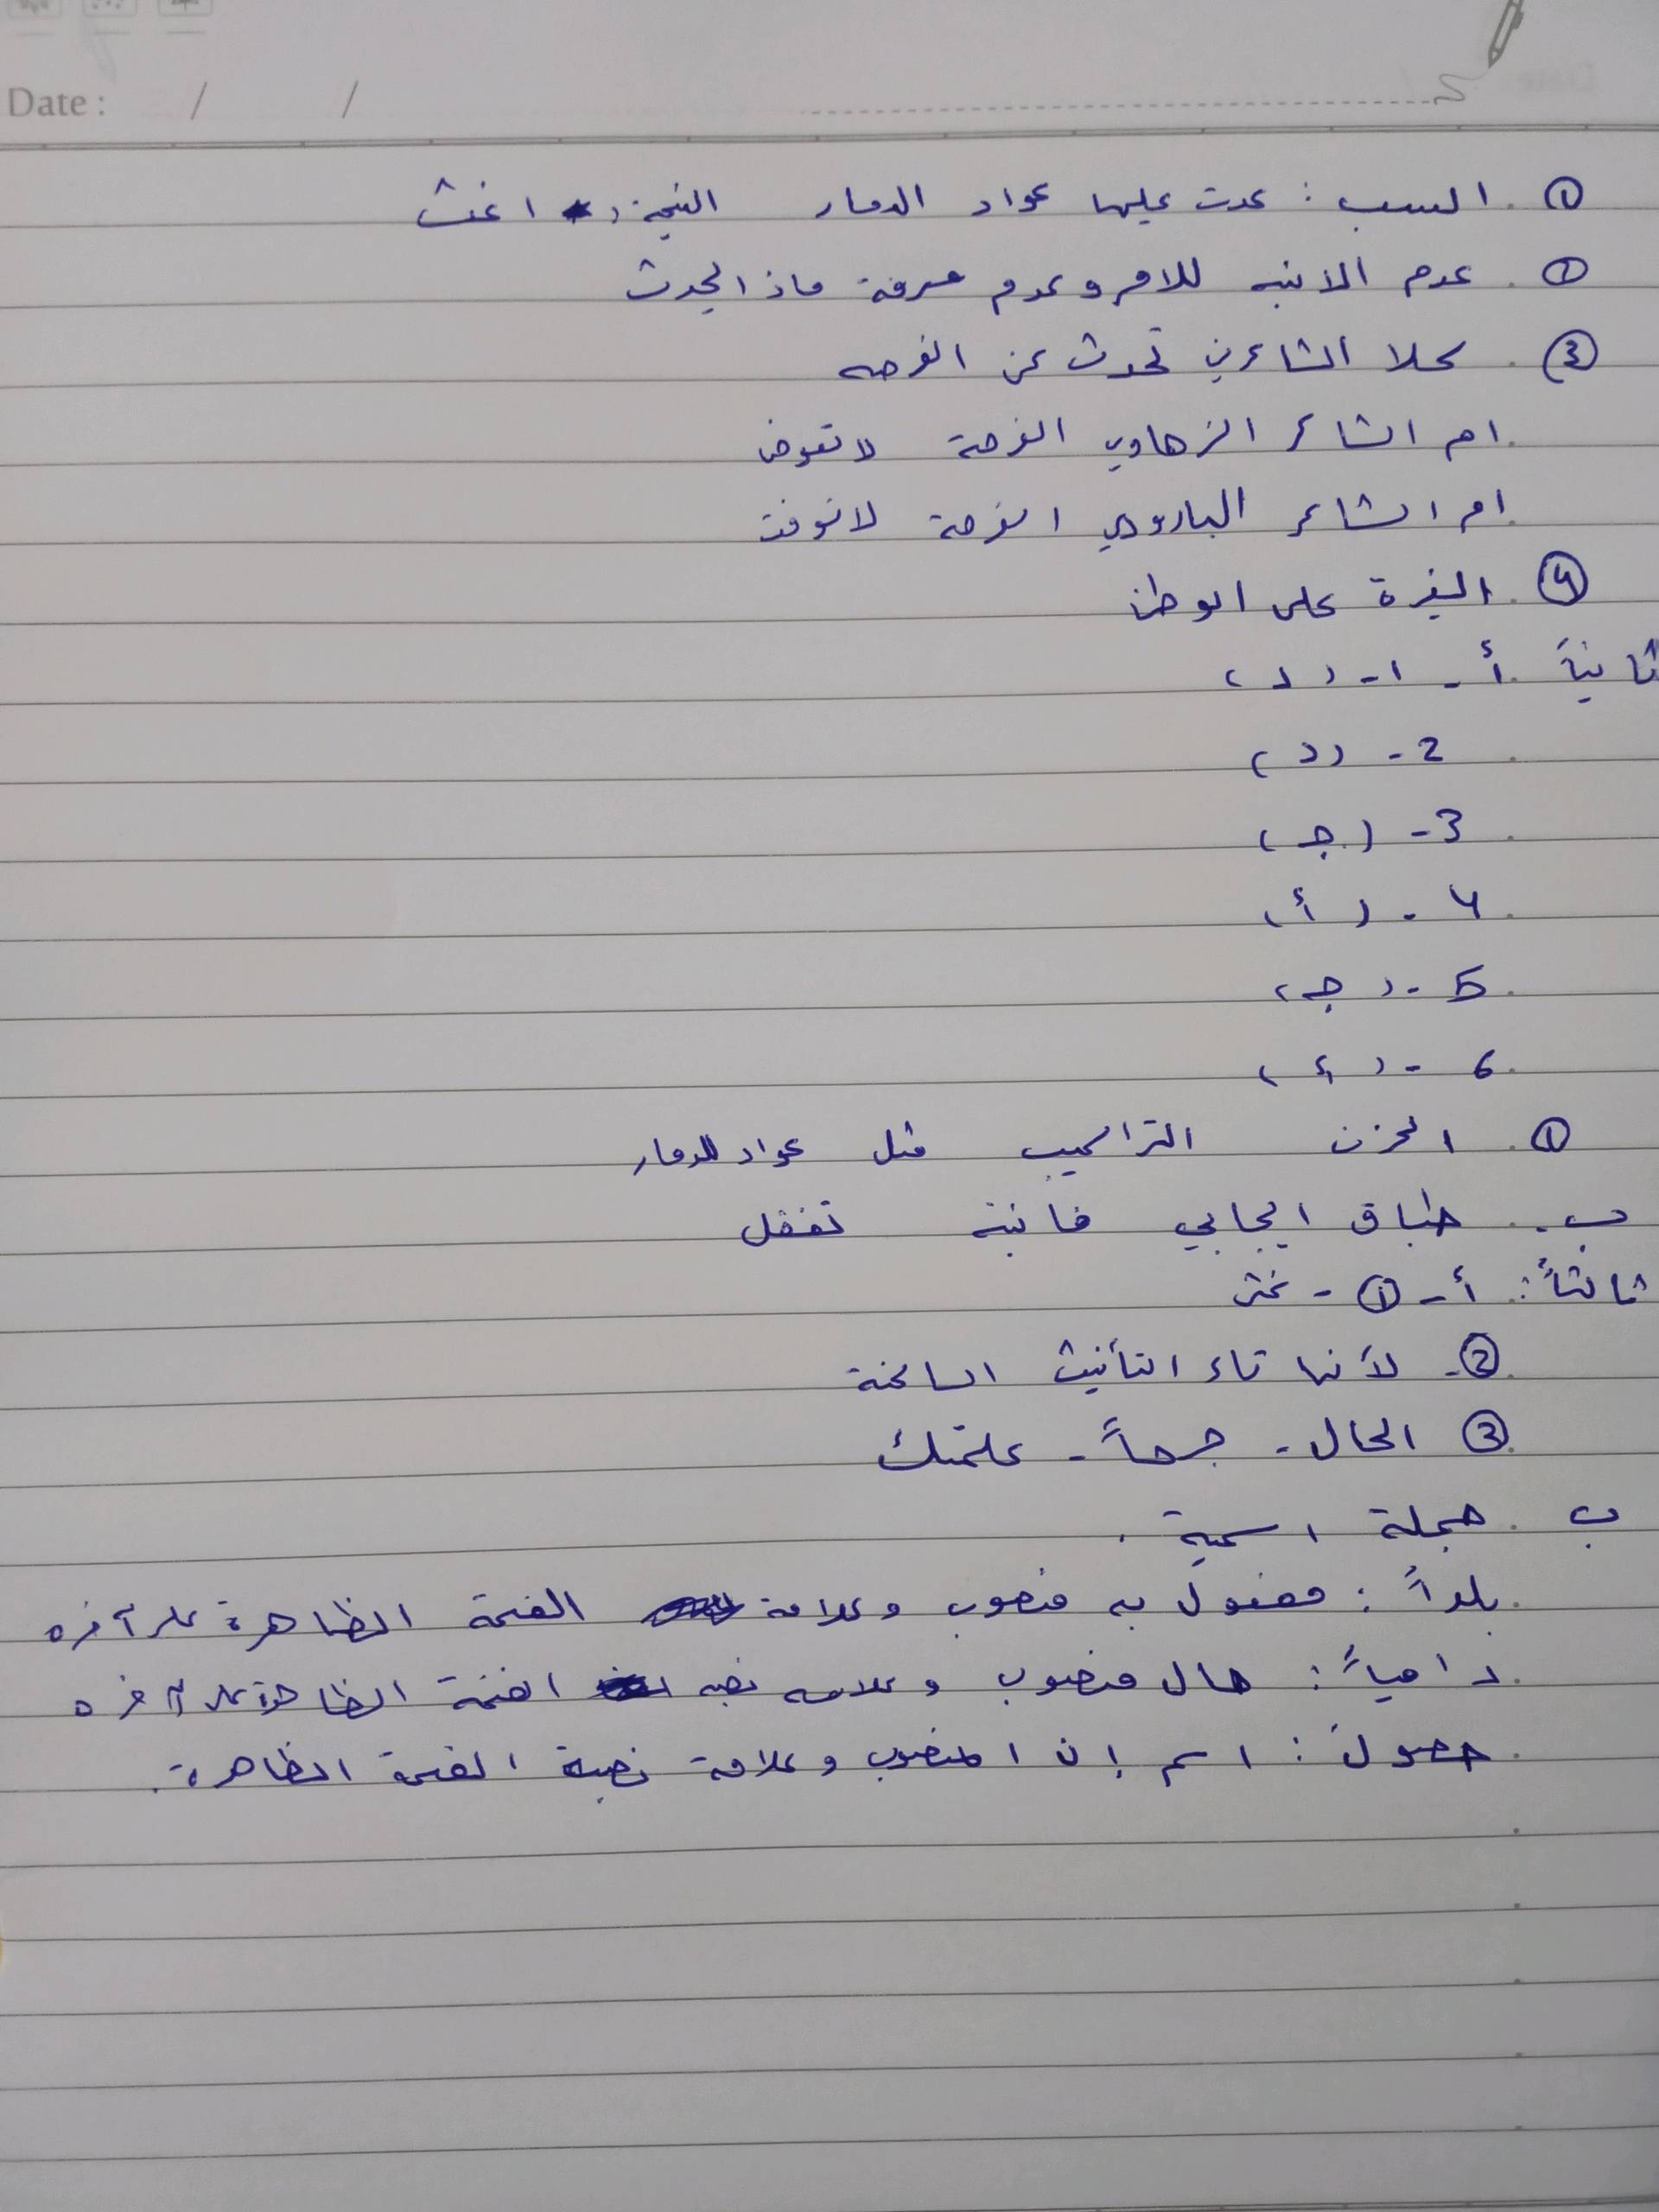 Date: / /
① السبب : عدت عليها عواد الدمار النتيجة :
② عدم الانتبه للامر و عدم معرفة ماذا يحدث
③ كلا الشاعرين تحدث عن الفرصه
ام الشاعر الزهاوي الفرصة لا تعوض
ام الشاعر البارودي الفرصة لا
④ الغيرة على الوطن
ثانيةً أ - 1 - ( د )
2 - ( د )
3 - ( جـ )
4 - ( أ )
5 - ( جـ )
6 - ( )
① الحزن التراكيب مثل عواد الدمار
ب - طباق ايجابي فانبته تغفل
ثالثاً : أ - ① -
② - لأنها تاء التأنيث الساكنة
③ الحال -
ب . جملة اسمية .
بلداً : مفعول به منصوب وعلامة الفتحة الظاهرة على آخره
دامياً : حال منصوب وعلامه نصبه الفتحة الظاهرة على آخره
: اسم إن المنصوب وعلامة نصبة الفتحة الظاهرة .